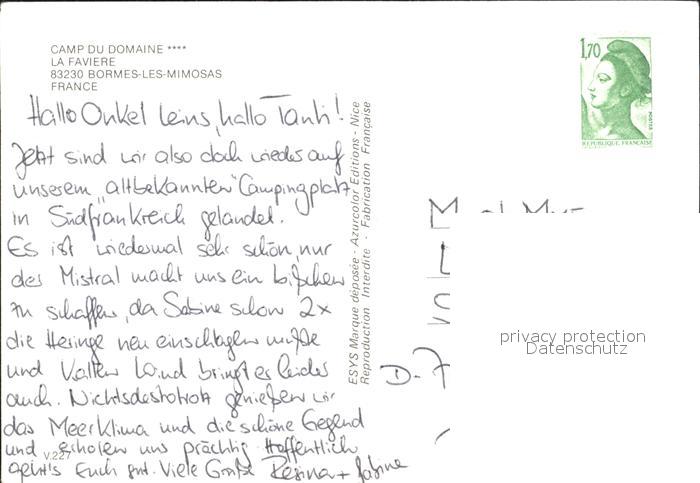 CAMP DU DOMAINE ****
LA FAVIERE
83230 BORMES-LES-MIMOSAS
FRANCE
Hallo Onkel Heins, hallo Tanti!
Jetzt sind wir also doch wieder auf
unserem "altbekannten" Campingplatz
in Südfrankreich gelandet.
Es ist wiedermal sehr schön, nur
der Mistral macht uns ein bißchen
zu schaffen, da Sabine schon 2x
die Heringe neu einschlagen mußte
und kalten Wind bringt er leider
auch. Nichtsdestotrotz genießen wir
das Meerklima und die schöne Gegend
und erholen uns prächtig. Hoffentlich
geht's Euch gut. Viele Grüße Regina + Sabine
V.227
ESYS Marque déposée - Azurcolor Editions - Nice
Reproduction Interdite - Fabrication Française
1,70
POSTES
REPUBLIQUE FRANÇAISE
D-7
privacy protection
Datenschutz